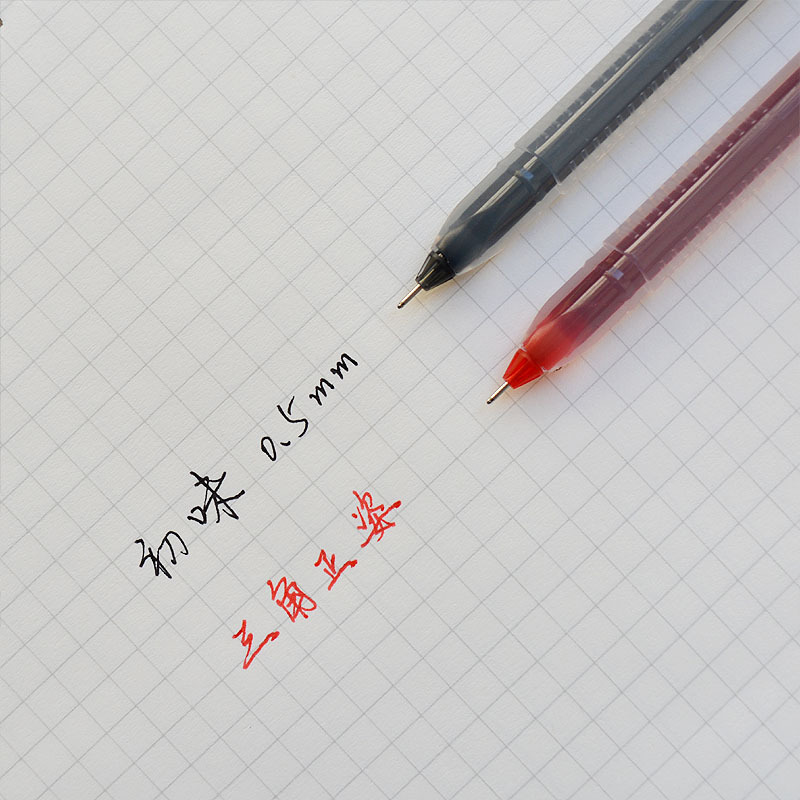 初味 0.5mm
三角正姿